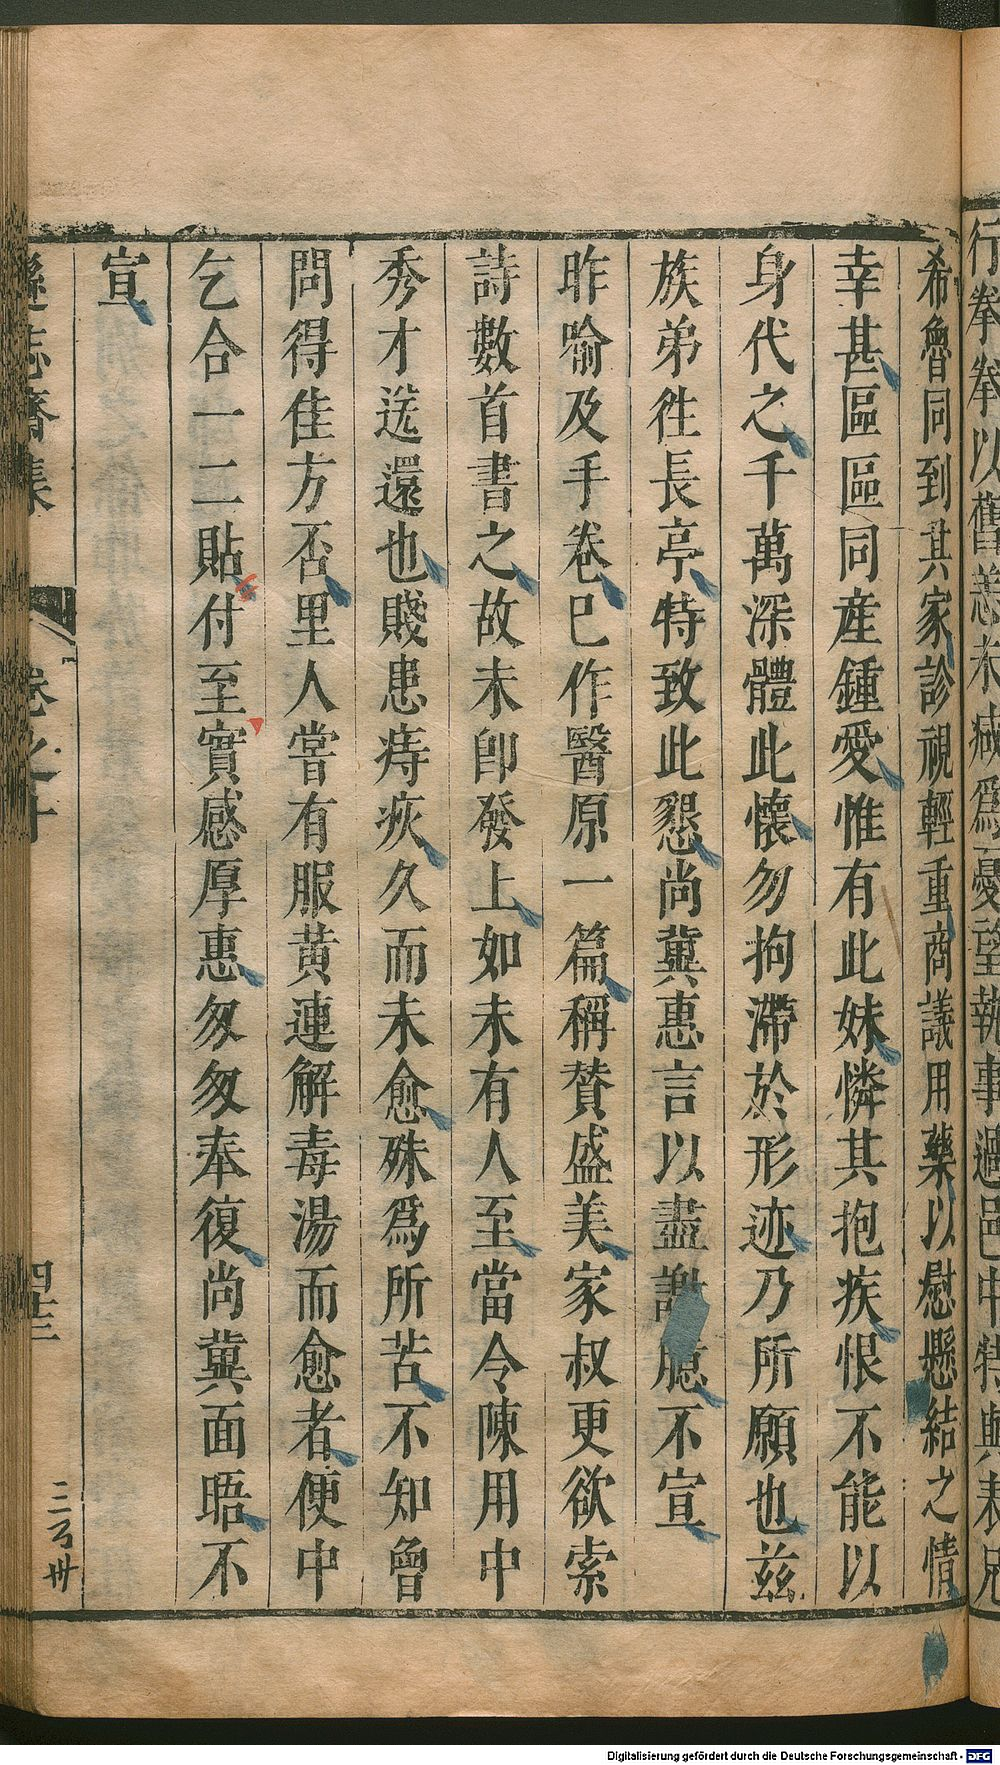 行拳拳以舊恙未痊爲憂望執事過邑中特與表兄
希魯同到其家診視輕重商議用藥以慰懸結之情
幸甚區區同產鍾愛惟有此妹憐其抱疾恨不能以
身代之千萬深體此懷勿拘滯於形迹乃所願也兹
族弟徃長亭特致此懇尚冀惠言以盡謝臆不宣
昨喻及手卷已作醫原一篇稱賛盛美家叔更欲索
詩數首書之故未卽發上如未有人至當令陳用中
秀才送還也賤患痔疾久而未愈殊爲所苦不知曾
問得佳方否里人嘗有服黄連解毒湯而愈者便中
乞合一二貼付至實感厚惠匆匆奉復尚冀面晤不
宣
遜志齋集
卷之十
四十三
三百卅
Digitalisierung gefördert durch die Deutsche Forschungsgemeinschaft - DFG